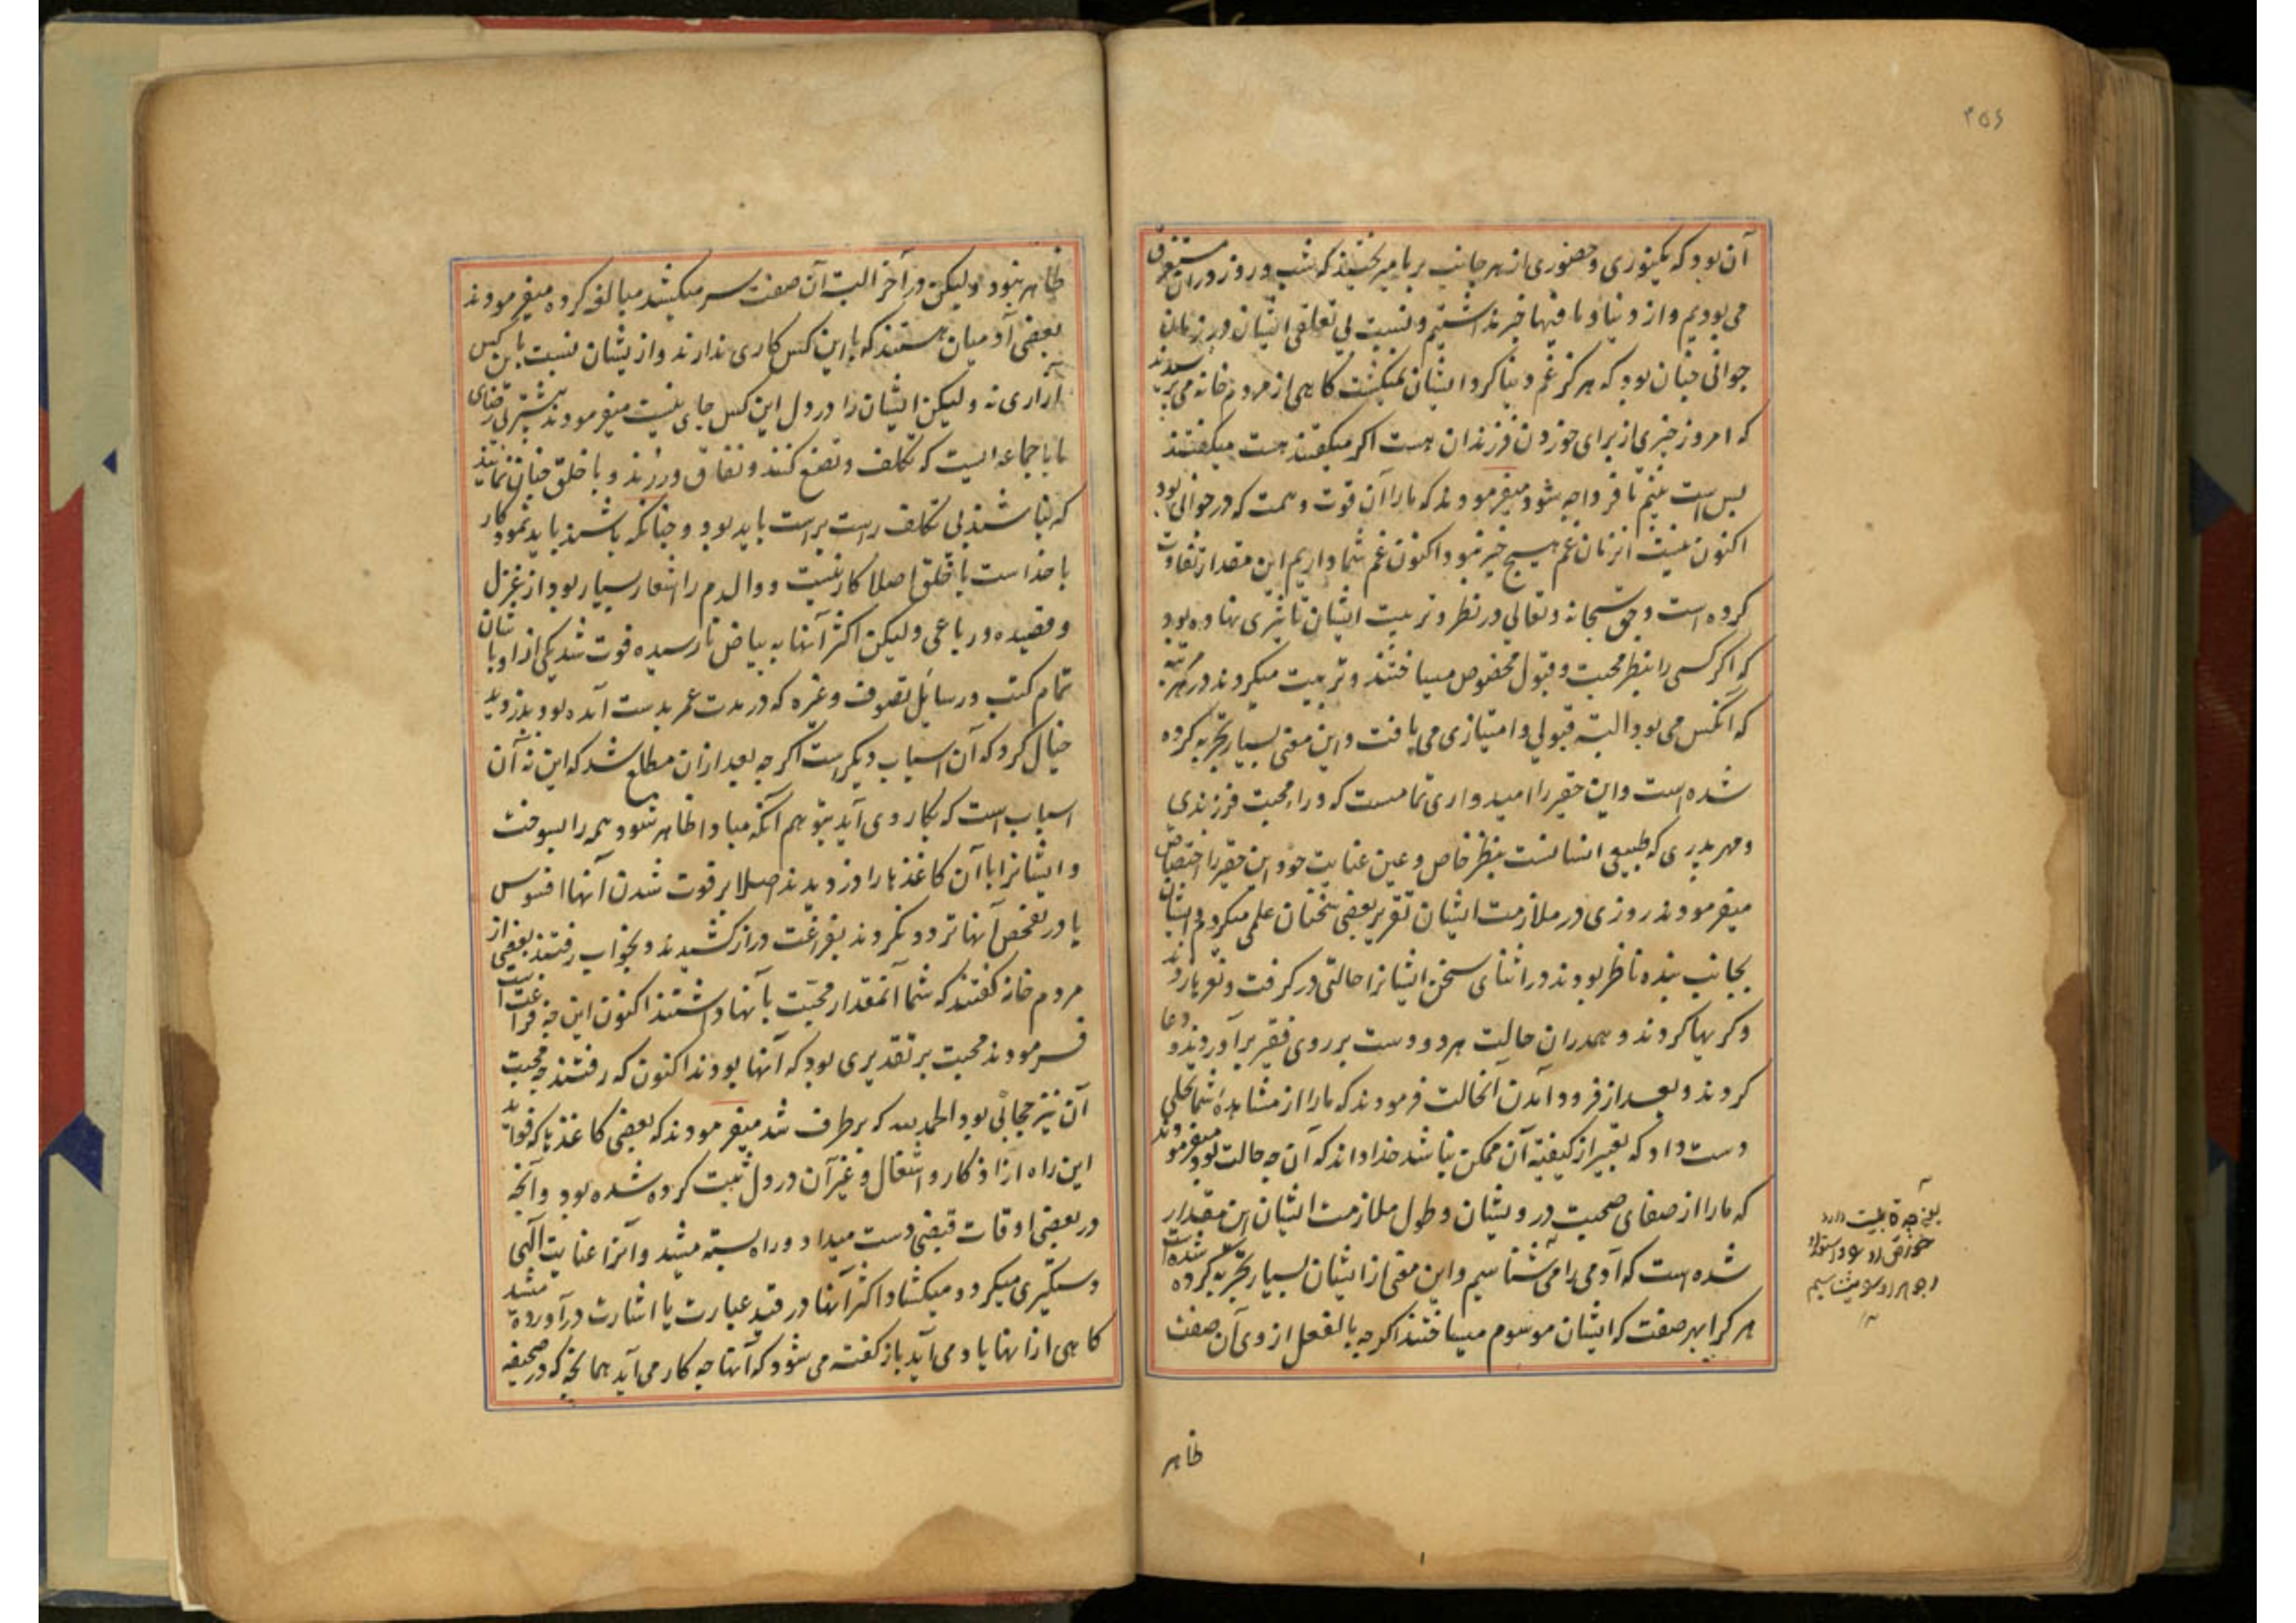 ۴۵۶
آن بود که یکنوری و حضوری از هر جانب بر ما میریختند که شب و روز در آن مستغرق
می بودیم و از دنیا و ما فیها خبر نداشتیم و نسبت بی تعلقی ایشان در زمان
جوانی چنان بود که هرگز غم دنیا گرد ایشان نمیگشت گاهی از مردم خانه می پرسیدند
که امروز چیزی از برای خوردن فرزندان هست اگر میگفتند هست میگفتند
بس است بینیم تا فردا چه شود میفرمودند که ما را آن قوت و همت که در جوانی بود
اکنون نیست آنزمان غم هیچ چیز نبود اکنون غم شما داریم این مقدار تفاوت
کرده است و حق سبحانه و تعالی در نظر و تربیت ایشان تاثیری نهاده بود
که اگر کسی را بنظر محبت و قبول مخصوص میساختند و تربیت میکردند در هر مرتبه
که آنکس می بود البته قبولی و امتیازی می یافت و این معنی بسیار تجربه کرده
شده است و این حقیر را امیدواری تمامست که وراء محبت فرزندی
و مهر پدری که طبیعی انسانست بنظر خاص و عین عنایت خود این حقیر را اختصاص
میفرمودند روزی در ملازمت ایشان تقریر بعضی سخنان علمی میکردم و ایشان
بجانب بنده ناظر بودند در اثنای سخن ایشانرا حالتی در گرفت و نعره بار زدند
و گریها کردند و همدران حالت هر دو دست بر روی فقیر برآوردند و دعا
کردند و بعد از فرود آمدن آنحالت فرمودند که ما را از مشاهدهٔ شما تجلی
دست داد که تعبیر از کیفیة آن ممکن نباشد خدا داند که آن چه حالت بود میفرمودند
که ما را از صفای صحبت درویشان و طول ملازمت ایشان این مقدار
شده است که آدمی را می شناسیم و این معنی از ایشان بسیار تجربه کرده شده است
هر کرا بهر صفت که ایشان موسوم میساختند اگر چه بالفعل از وی آن صفت
یعنی چه قابلیت دارد
ظاهر
ظاهر نبود ولیکن در آخر البته آن صفت سر میکشید مبالغه کرده میفرمودند
بعضی آدمیان هستند که با این کس کاری ندارند و از یشان نسبت باین کس
آزاری نه ولیکن ایشان را در دل این کس جای نیست میفرمودند بیشتر بی رضای
ما با جماعه ایست که تکلف و تصنع کنند و نفاق ورزند و با خلق چنان نمایند
که نباشند بی تکلف راست براست باید بود و چنانکه باشند باید نمود کار
با خداست با خلق اصلا کار نیست و والدم را اشعار بسیار بود از غزل
و قصیده و رباعی ولیکن اکثر آنها به بیاض نارسیده فوت شد یکی از اوباشان
تمام کتب و رسایل تصوف و غیره که در مدت عمر بدست آمده بود بدزدید
خیال کرد که آن اسباب دیگر است اگر چه بعد ازان مطلع شد که این نه آن
اسباب است که بکار وی آید بتوهم آنکه مبادا ظاهر شود همه را بسوخت
و ایشانرا با آن کاغذها را دزدیدند اصلا بر فوت شدن آنها افسوس
یا در تفحص آنها تردد نکردند بفراغت دراز کشیدند و بخواب رفتند بعضی از
مردم خانه گفتند که شما آنمقدار محبت بآنها داشتند اکنون این چه فراغت است
فرمودند محبت بر تقدیری بود که آنها بودند اکنون که رفتند چه محبت
آن نیز حجابی بود الحمد لله که بر طرف شد میفرمودند که بعضی کاغذها که فواید
این راه از اذکار و اشغال و غیر آن در دل ثبت کرده شده بود و آنچه
در بعضی اوقات قبضی دست میداد و راه بسته میشد و آنرا عنایت الهی
دستگیری میکرد و میکشاد اکثر آنها در قید عبارت یا اشارت در آورده میشد
گاهی ازانها یاد می آید باز گفته می شود که آنها چه کار می آید همانچه که در صحیفه